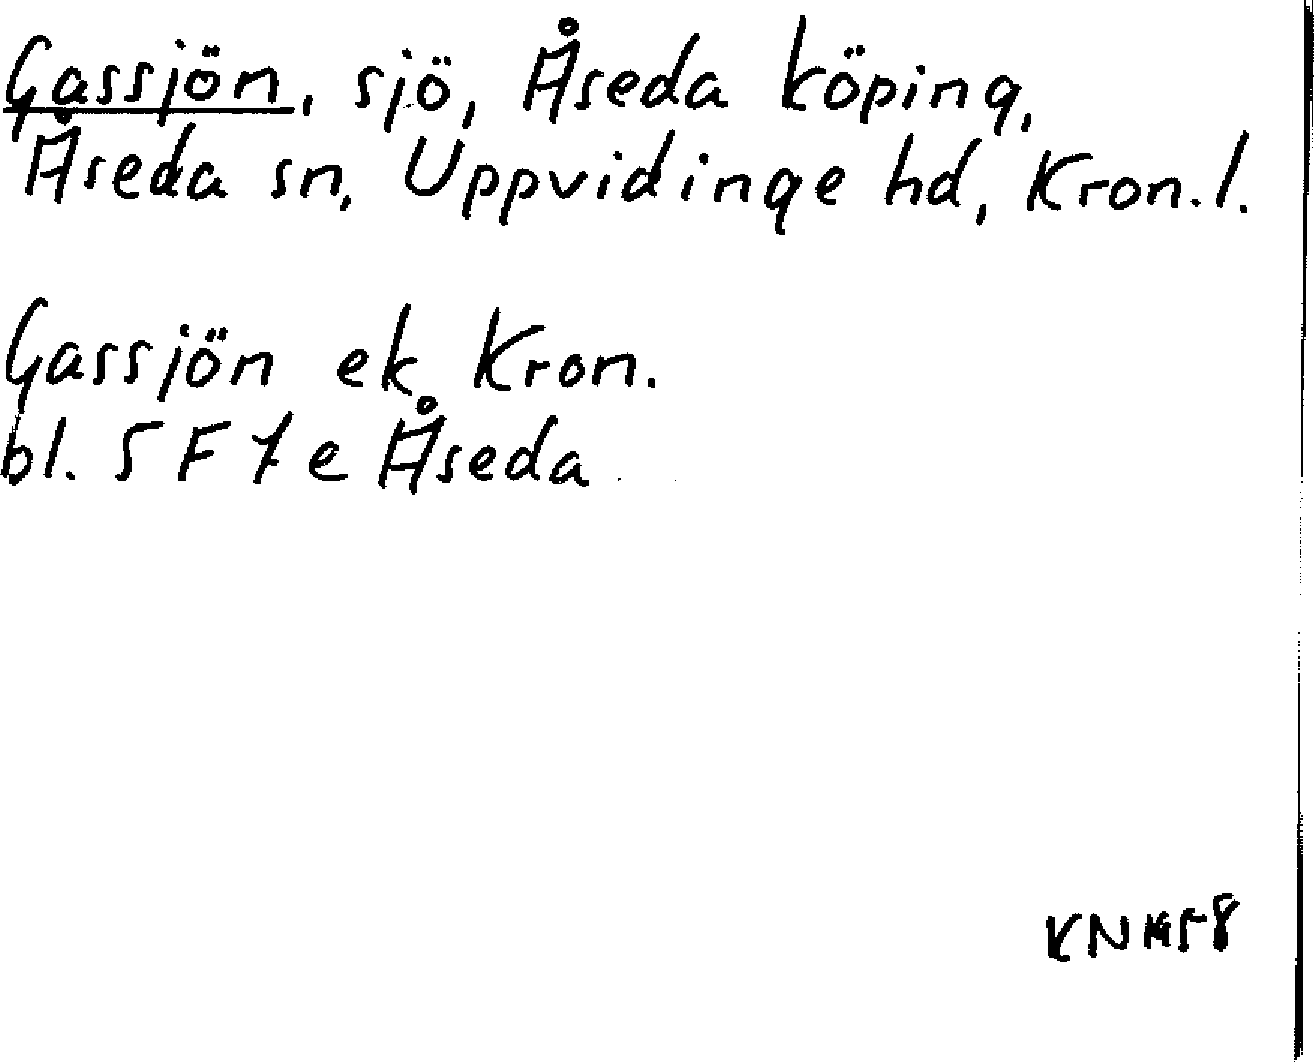 Gassjön, sjö, Åseda köping,
Åseda sn, Uppvidinge hd, Kron. l.
Gassjön ek Kron.
bl. 5 F 7 e Åseda